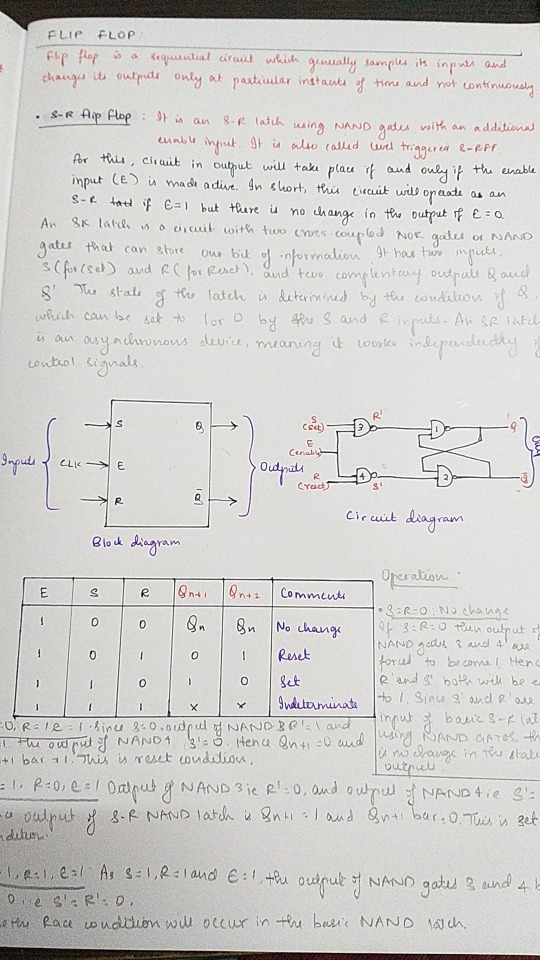 FLIP FLOP:
Flip flop is a sequential circuit which generally samples its inputs and
changes its outputs only at particular instants of time and not continuously
• S-R flip flop : It is an S-R latch using NAND gates with an additional
enable input. It is also called level triggered S-RFF
for this, circuit in output will take place if and only if the enable
input (E) is made active. In short, this circuit will operate as an
S-R if E=1 but there is no change in the output if E=0.
An SR latch is a circuit with two cross-coupled NOR gates or NAND
gates that can store one bit of information It has two inputs,
S(for(set) and R(for Reset), and two complementary outputs Q and
Q' The state of the latch is determined by the condition of Q,
which can be set to 1 or 0 by the S and R inputs. An SR latch
is an asynchronous device, meaning it works independently of
control signals.
Inputs
S
CLK → E
R
Q
Q̅
Outputs
Block diagram
S
(set)
E
(enable)
R
(reset)
3
R'
4
S'
1
2
Q
Q̅
Circuit diagram
E S R Qn+1 Qn+2 Comments
1 0 0 Qn Qn No change
1 0 1 0 1 Reset
1 1 0 1 0 Set
1 1 1 x x Indeterminate
Operation
• S=R=0: No change
If S=R=0 then output of
NAND gates 3 and 4 are
forced to become 1. Henc
R' and S' both will be e
to 1. Since S' and R' are
input of basic S-R lat
using NAND gates, th
is no change in the state
outputs.
=0, R=1 E=1. Since S=0, output of NAND 3 R'=1 and
1 the output of NAND 4, S'=0. Hence Qn+1=0 and
+1 bar=1. This is reset condition.
=1, R=0, E=1 Output of NAND 3 ie R'=0, and output of NAND 4 i.e S'=
output of S-R NAND latch is Qn+1=1 and Qn+1 bar=0. This is set
ndition.
1, R=1, E=1 As S=1, R=1 and E=1, the output of NAND gates 3 and 4 b
0 i.e S'=R'=0.
the Race condition will occur in the basic NAND latch.